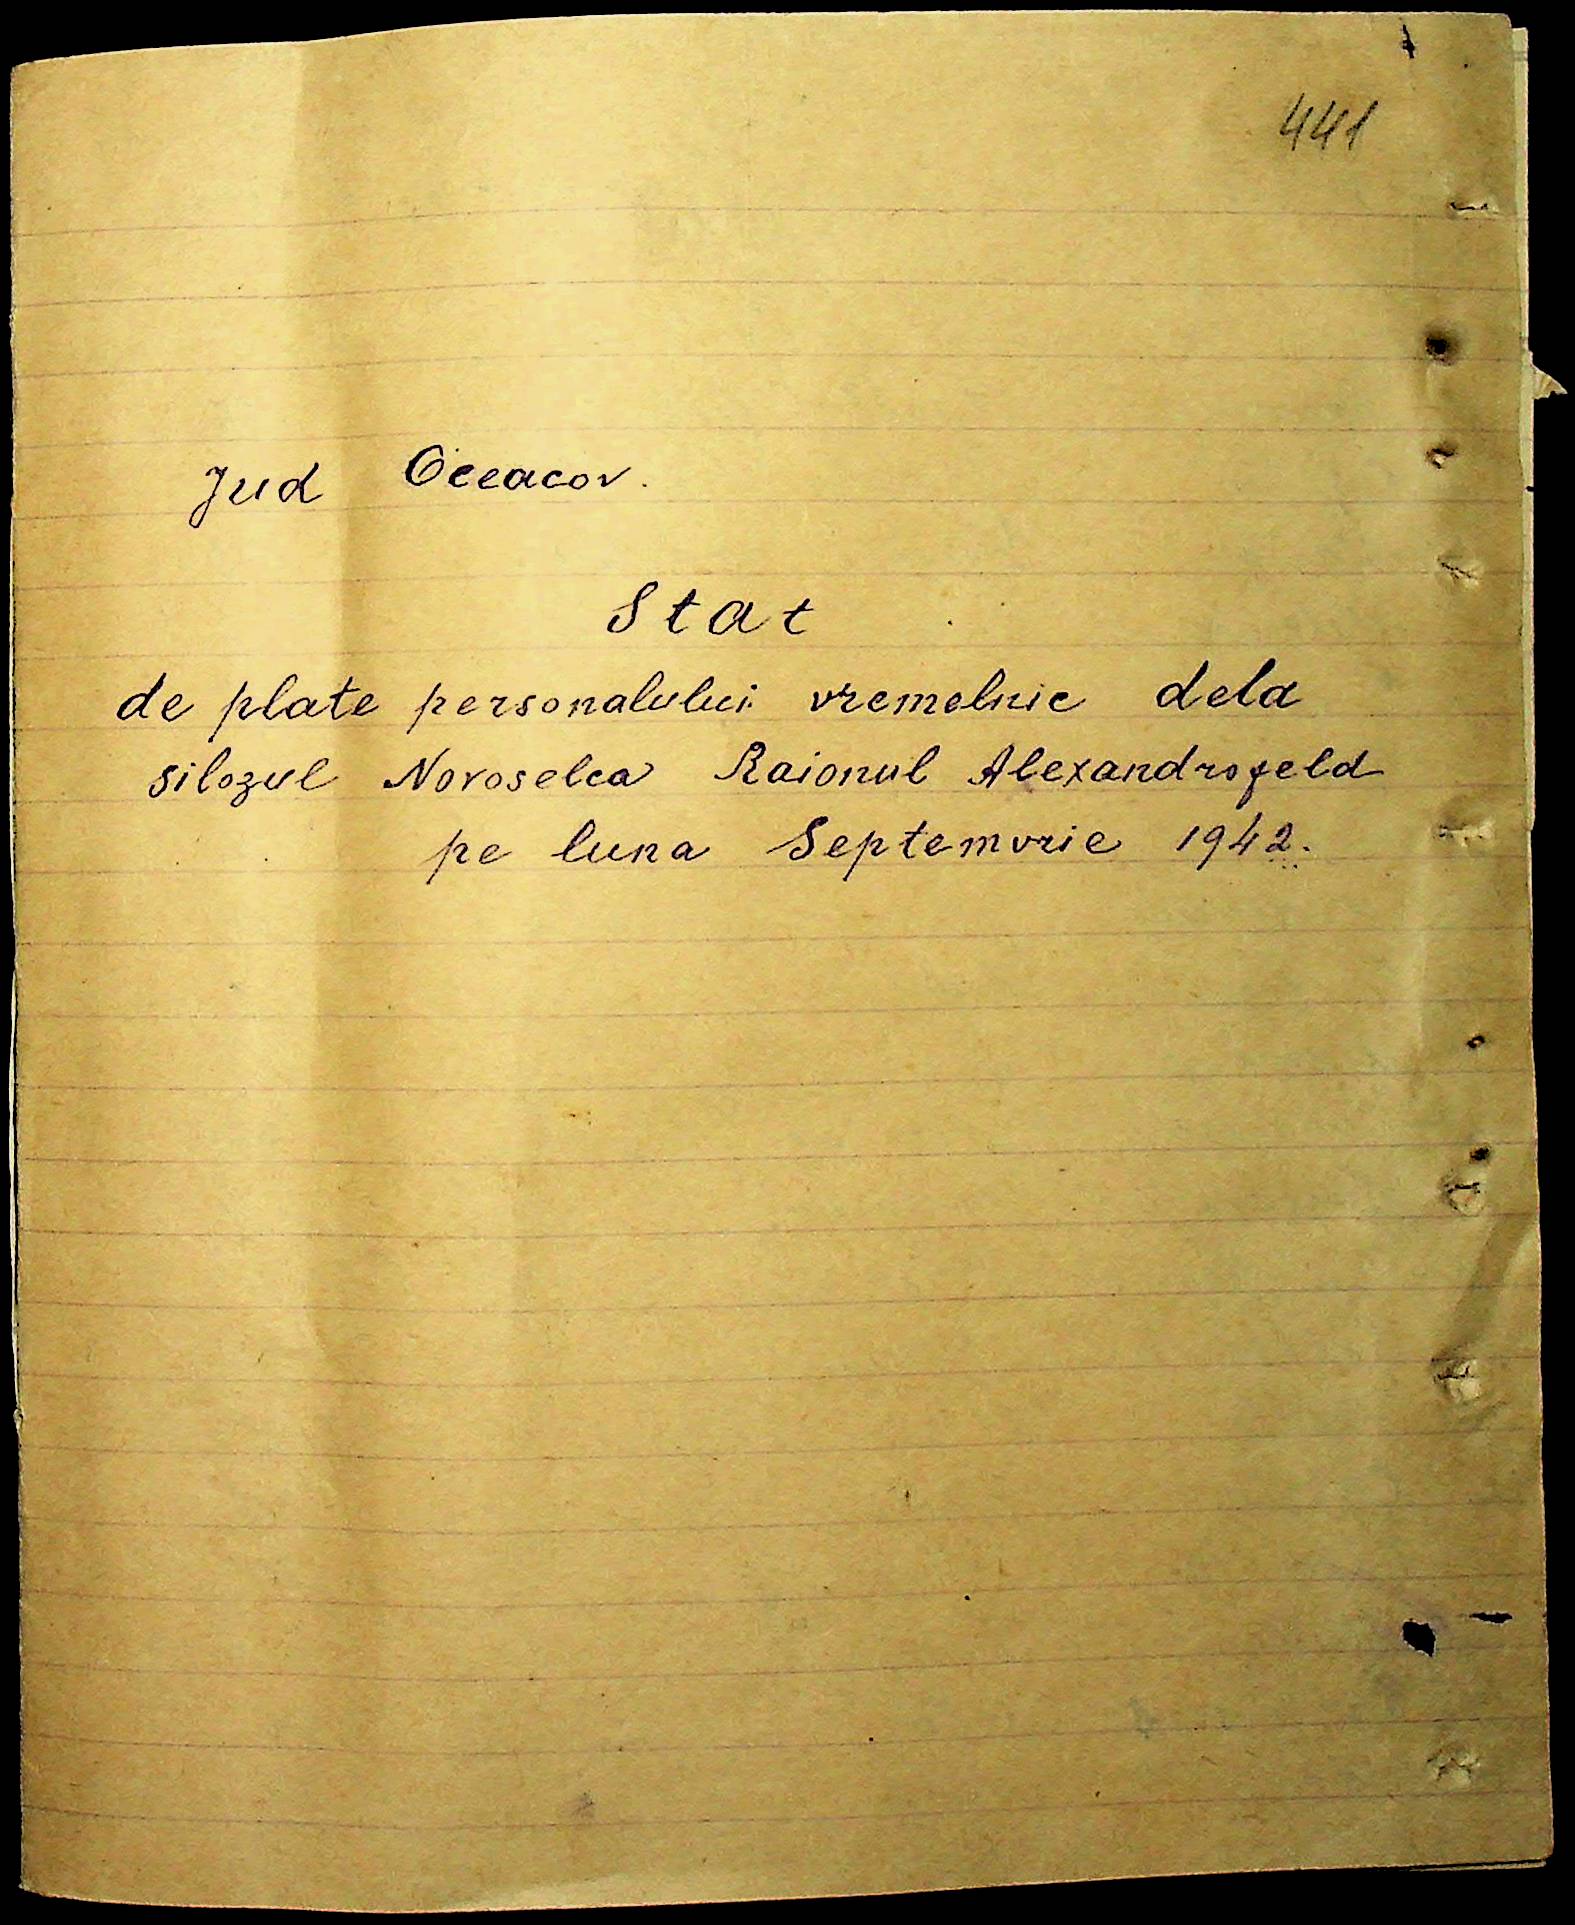 441
Jud Oceacov.
Stat
de plate personalului vremelnic dela
silozul Novoselca Raionul Alexandrofeld
pe luna Septemvrie 1942.